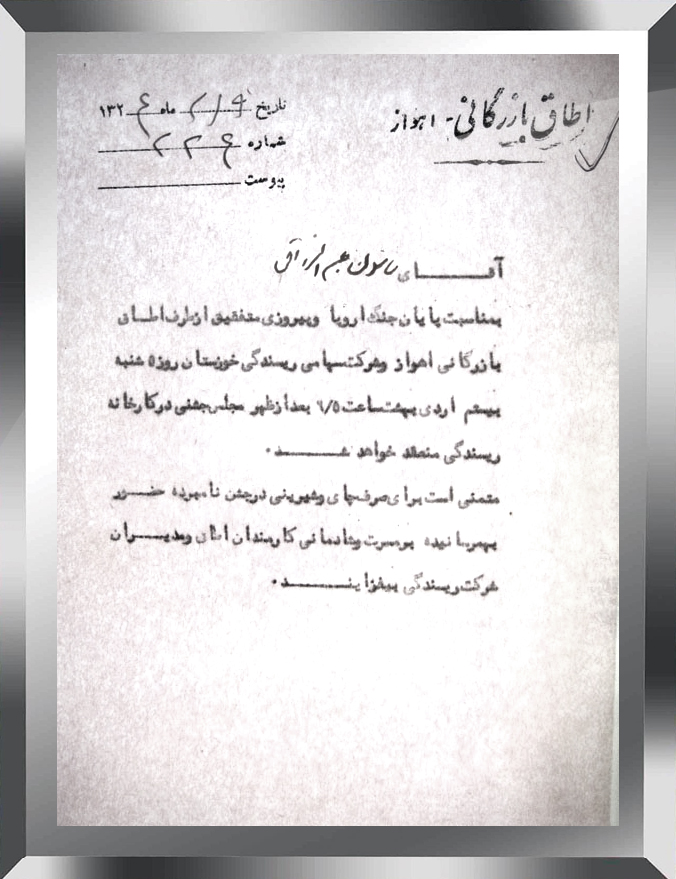 اطاق بازرگانی - اهواز
تاریخ ۱۹/۲ ماه ۱۳۲۴
شماره ۲۲۴
پیوست
آقـــــای مامون عبدالرزاق
بمناسبت پایان جنگ اروپا وپیروزی متفقین ازطرف اطــاق
بازرگانی اهواز وشرکت سهامی ریسندگی خوزستان روز ۵ شنبه
بیستم اردی بهشت ساعت ۶/۵ بعدازظهر مجلس جشنی درکارخانه
ریسندگی منعقد خواهد شـــــد .
متمنی است برای صرف چای وشیرینی درجشن نامبرده حضــور
بهمرسانیده برمسرت وشادمانی کارمندان اطاق ومدیــــران
شرکت ریسندگی بیفزاینـــــد .